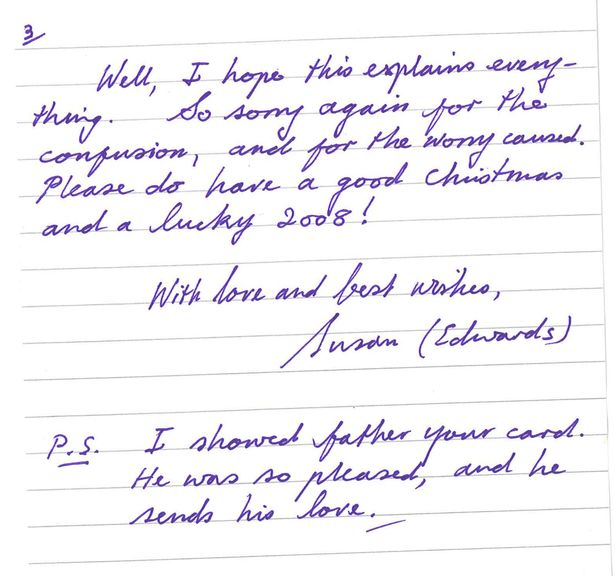 3
Well, I hope this explains every-
thing. So sorry again for the
confusion, and for the worry caused.
Please do have a good Christmas
and a lucky 2008!
With love and best wishes,
Susan (Edwards)
P.S. I showed father your card.
He was so pleased, and he
sends his love.